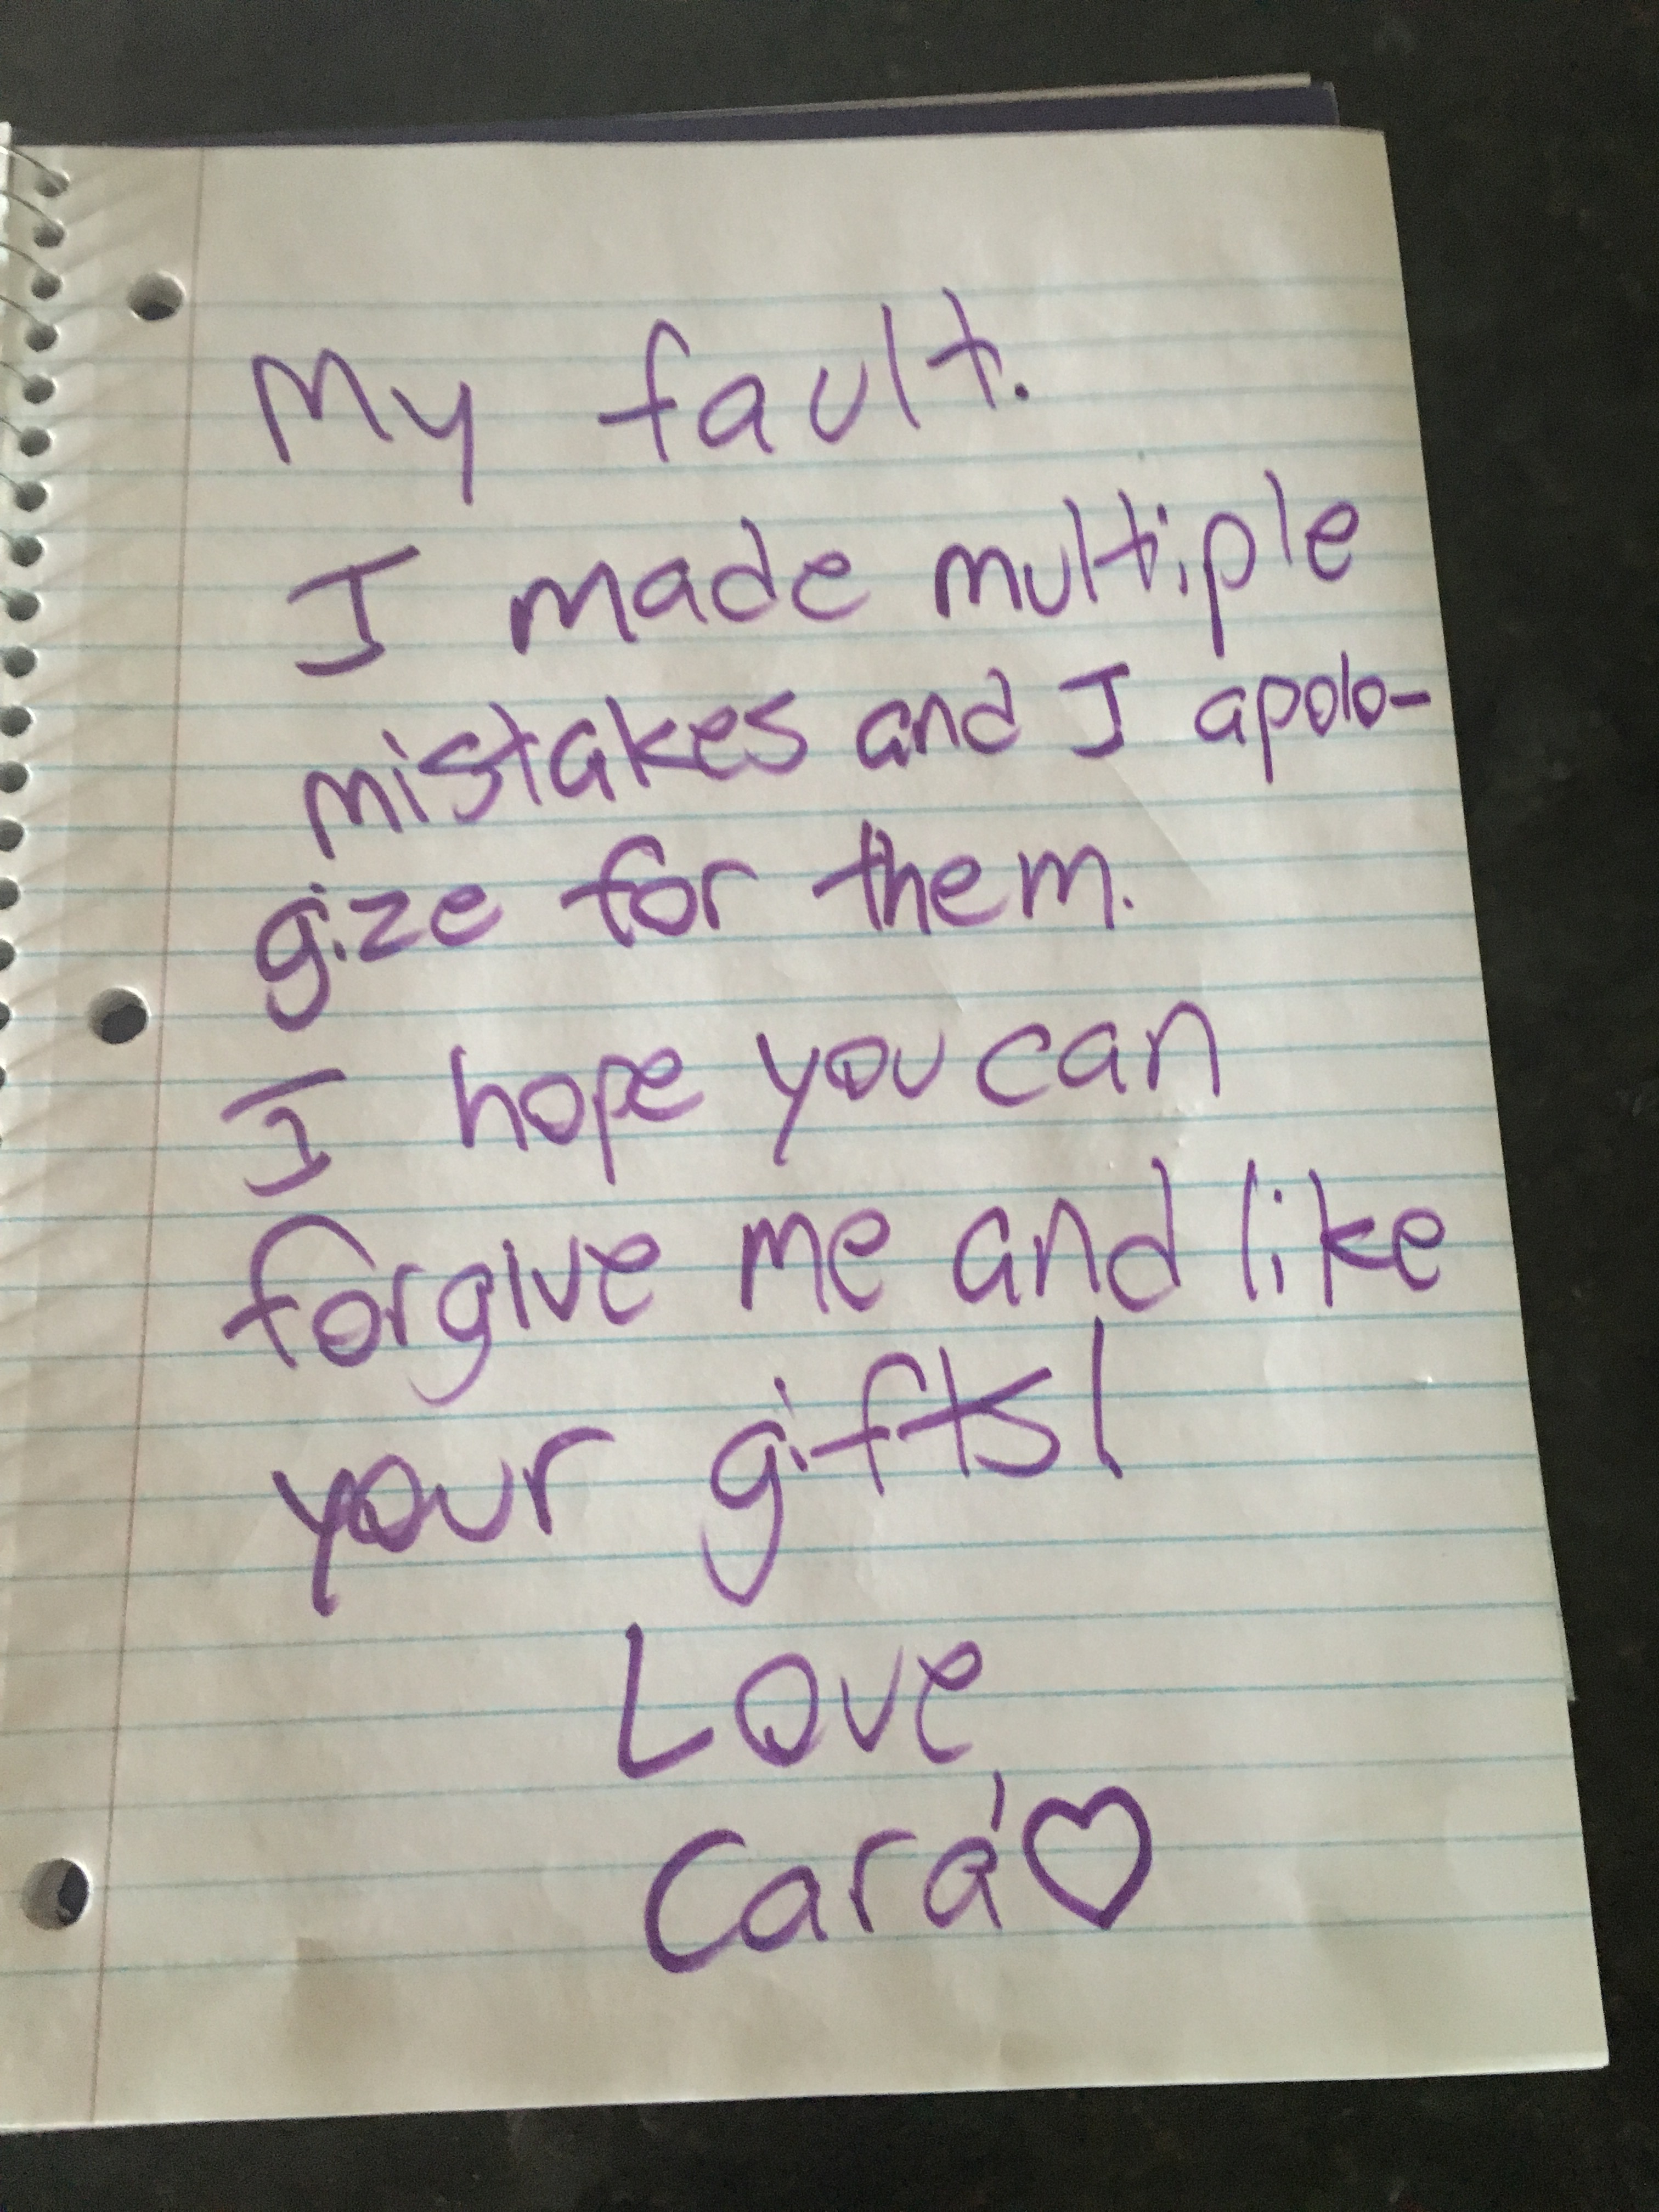 My fault.
I made multiple
mistakes and I apolo-
gize for them.
I hope you can
forgive me and like
your gifts!
Love,
Cara ♡